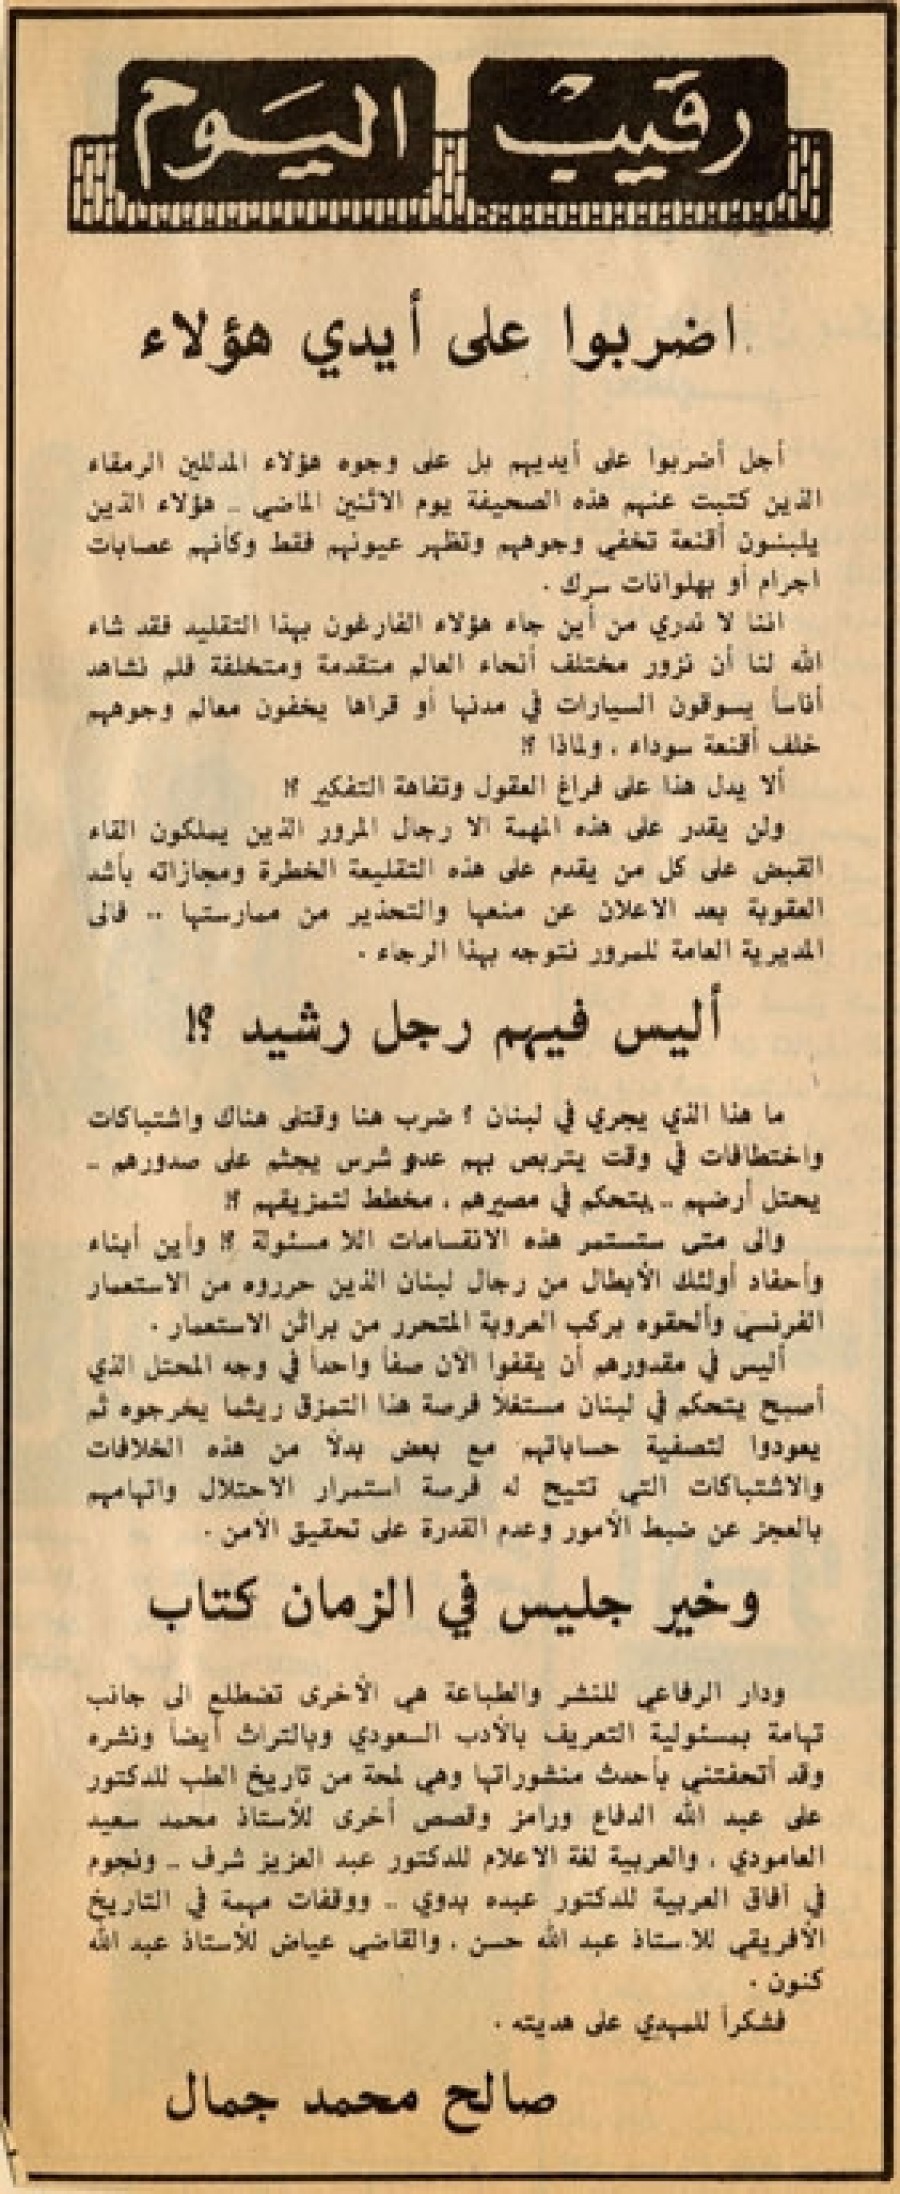 رقيب اليوم
اضربوا على أيدي هؤلاء
أجل أضربوا على أيديهم بل على وجوه هؤلاء المدللين الرمقاء
الذين كتبت عنهم هذه الصحيفة يوم الاثنين الماضي .. هؤلاء الذين
يلبسون أقنعة تخفي وجوههم وتظهر عيونهم فقط وكأنهم عصابات
اجرام أو بهلوانات سرك .
اننا لا ندري من أين جاء هؤلاء الفارغون بهذا التقليد فقد شاء
الله لنا أن نزور مختلف أنحاء العالم متقدمة ومتخلفة فلم نشاهد
أناساً يسوقون السيارات في مدنها أو قراها يخفون معالم وجوههم
خلف أقنعة سوداء ، ولماذا ؟!
ألا يدل هذا على فراغ العقول وتفاهة التفكير ؟!
ولن يقدر على هذه المهمة الا رجال المرور الذين يملكون القاء
القبض على كل من يقدم على هذه التقليعة الخطرة ومجازاته بأشد
العقوبة بعد الاعلان عن منعها والتحذير من ممارستها .. فالى
المديرية العامة للمرور نتوجه بهذا الرجاء .
أليس فيهم رجل رشيد ؟!
ما هذا الذي يجري في لبنان ؟ ضرب هنا وقتلى هناك واشتباكات
واختطافات في وقت يتربص بهم عدو شرس يجثم على صدورهم ..
يحتل أرضهم .. يتحكم في مصيرهم ، مخطط لتمزيقهم ؟!
والى متى ستستمر هذه الانقسامات اللا مسئولة ؟! وأين أبناء
وأحفاد أولئك الأبطال من رجال لبنان الذين حرروه من الاستعمار
الفرنسي وألحقوه بركب العروبة المتحرر من براثن الاستعمار .
أليس في مقدورهم أن يقفوا الآن صفاً واحداً في وجه المحتل الذي
أصبح يتحكم في لبنان مستغلاً فرصة هذا التمزق ريثما يخرجوه ثم
يعودوا لتصفية حساباتهم مع بعض بدلاً من هذه الخلافات
والاشتباكات التي تتيح له فرصة استمرار الاحتلال واتهامهم
بالعجز عن ضبط الأمور وعدم القدرة على تحقيق الأمن .
وخير جليس في الزمان كتاب
ودار الرفاعي للنشر والطباعة هي الأخرى تضطلع الى جانب
تهامة بمسئولية التعريف بالأدب السعودي وبالتراث أيضاً ونشره
وقد أتحفتني بأحدث منشوراتها وهي لمحة من تاريخ الطب للدكتور
على عبد الله الدفاع ورامز وقصص أخرى للأستاذ محمد سعيد
العامودي ، والعربية لغة الاعلام للدكتور عبد العزيز شرف .. ونجوم
في أفاق العربية للدكتور عبده بدوي .. ووقفات مهمة في التاريخ
الأفريقي للاستاذ عبد الله حسن ، والقاضي عياض للأستاذ عبد الله
كنون .
فشكراً للمهدي على هديته .
صالح محمد جمال